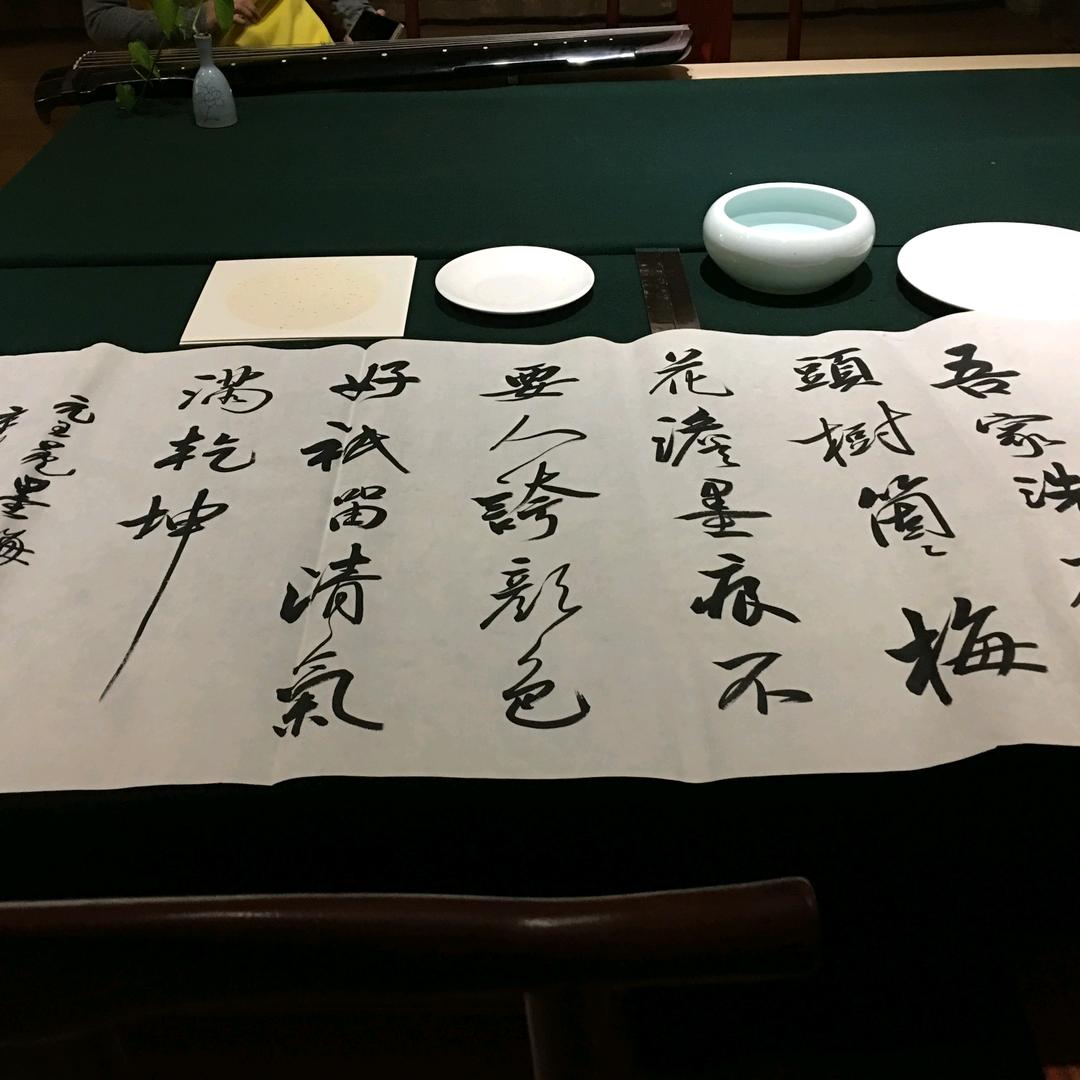 吾家洗
頭樹箇〻梅
花澹墨痕不
要人誇顏色
好祇留清氣
滿乾坤
元王冕墨梅